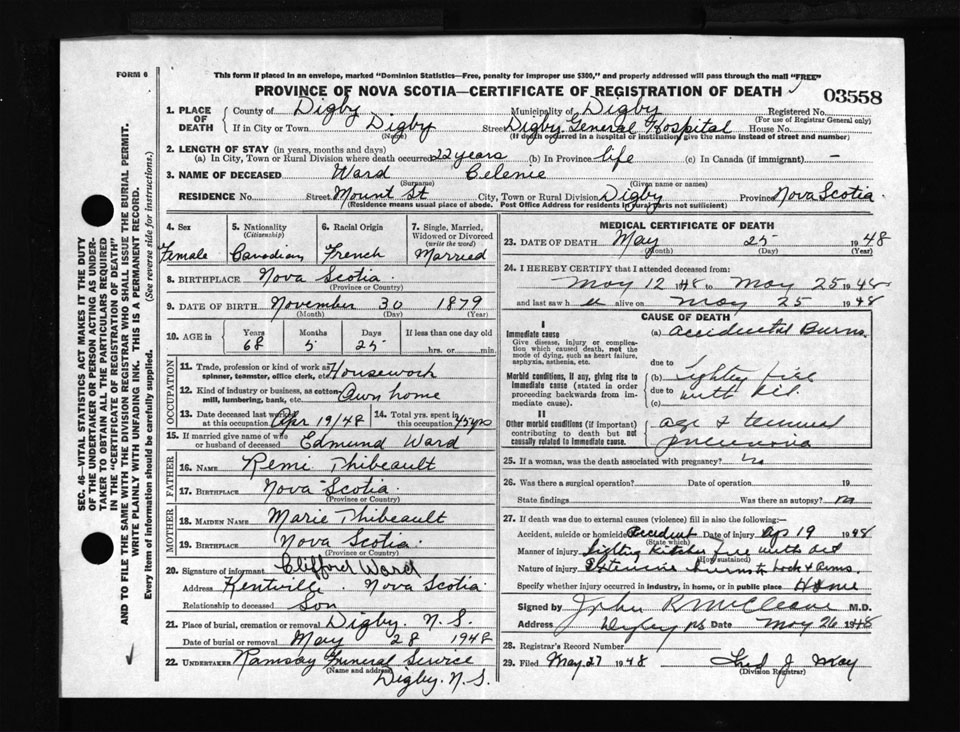 FORM 6
This form if placed in an envelope, marked "Dominion Statistics—Free, penalty for improper use $300," and properly addressed will pass through the mail "FREE"
PROVINCE OF NOVA SCOTIA—CERTIFICATE OF REGISTRATION OF DEATH
03558
1. PLACE OF DEATH County of Digby Municipality of Digby Registered No.
(For use of Registrar General only)
If in City or Town Digby Street Digby General Hospital House No.
(Name) (If death occurred in a hospital or institution, give the name instead of street and number)
2. LENGTH OF STAY (in years, months and days)
(a) In City, Town or Rural Division where death occurred 22 years (b) In Province life (c) In Canada (if immigrant) –
3. NAME OF DECEASED Ward Celenie
(Surname) (Given name or names)
RESIDENCE No. Street Mount St City, Town or Rural Division Digby Province Nova Scotia
(Residence means usual place of abode. Post Office Address for residents in rural parts not sufficient)
4. Sex 5. Nationality (Citizenship) 6. Racial Origin 7. Single, Married, Widowed or Divorced (write the word)
Female Canadian French Married
8. BIRTHPLACE Nova Scotia.
(Province or Country)
9. DATE OF BIRTH November 30 1879
(Month) (Day) (Year)
10. AGE in Years Months Days If less than one day old
68 5 25 hrs. or min.
OCCUPATION
11. Trade, profession or kind of work as spinner, teamster, office clerk, etc. Housework
12. Kind of industry or business, as cotton mill, lumbering, bank, etc. Own home
13. Date deceased last worked at this occupation Apr 19/48 14. Total yrs. spent in this occupation 45 yrs
15. If married give name of wife or husband of deceased Edmund Ward
FATHER
16. NAME Remi Thibeault
17. BIRTHPLACE Nova Scotia.
(Province or Country)
MOTHER
18. MAIDEN NAME Marie Thibeault
19. BIRTHPLACE Nova Scotia.
(Province or Country)
20. Signature of informant Clifford Ward
Address Kentville Nova Scotia
Relationship to deceased Son
21. Place of burial, cremation or removal Digby. N.S.
Date of burial or removal May 28 1948
22. UNDERTAKER Ramsay Funeral Service
(Name and address) Digby. N.S.
MEDICAL CERTIFICATE OF DEATH
23. DATE OF DEATH May 25 1948
(Month) (Day) (Year)
24. I HEREBY CERTIFY that I attended deceased from:
May 12 1948 to May 25 1948
and last saw her alive on May 25 1948
CAUSE OF DEATH
I
Immediate cause (a) Accidental Burns
Give disease, injury or complication which caused death, not the mode of dying, such as heart failure, asphyxia, asthenia, etc.
due to
Morbid conditions, if any, giving rise to immediate cause (stated in order proceeding backwards from immediate cause). (b) Lighting fire
due to with oil.
(c)
II
Other morbid conditions (if important) contributing to death but not causally related to immediate cause. age & terminal
pneumonia
25. If a woman, was the death associated with pregnancy? no
26. Was there a surgical operation? Date of operation 19
State findings Was there an autopsy? no
27. If death was due to external causes (violence) fill in also the following:—
Accident, suicide or homicide Accident Date of injury Ap 19 1948
(State which)
Manner of injury Lighting kitchen fire with oil
(How sustained)
Nature of injury Extensive burns to back & arms.
Specify whether injury occurred in industry, in home, or in public place Home
Signed by John R McCleave M.D.
Address Digby NS Date May 26 1948
28. Registrar's Record Number
29. Filed May 27 1948 Fred J. May
(Division Registrar)
SEC. 46—VITAL STATISTICS ACT MAKES IT THE DUTY
OF THE UNDERTAKER OR PERSON ACTING AS UNDER-
TAKER TO OBTAIN ALL THE PARTICULARS REQUIRED
IN THE "CERTIFICATE OF REGISTRATION OF DEATH"
AND TO FILE THE SAME WITH THE DIVISION REGISTRAR WHO SHALL ISSUE THE BURIAL PERMIT.
WRITE PLAINLY WITH UNFADING INK. THIS IS A PERMANENT RECORD.
Every item of information should be carefully supplied. (See reverse side for instructions.)